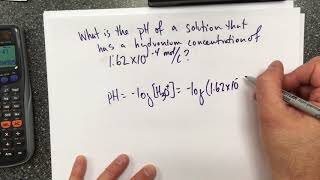 What is the pH of a solution that
has a hydronium concentration of
1.62x10⁻⁴ mol/L?
pH = -log[H₃O⁺] = -log(1.62x10⁻